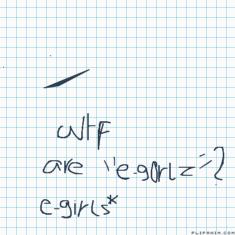 wtf
are "e-gorlz"?
e-girls*
FLIPANIM.COM